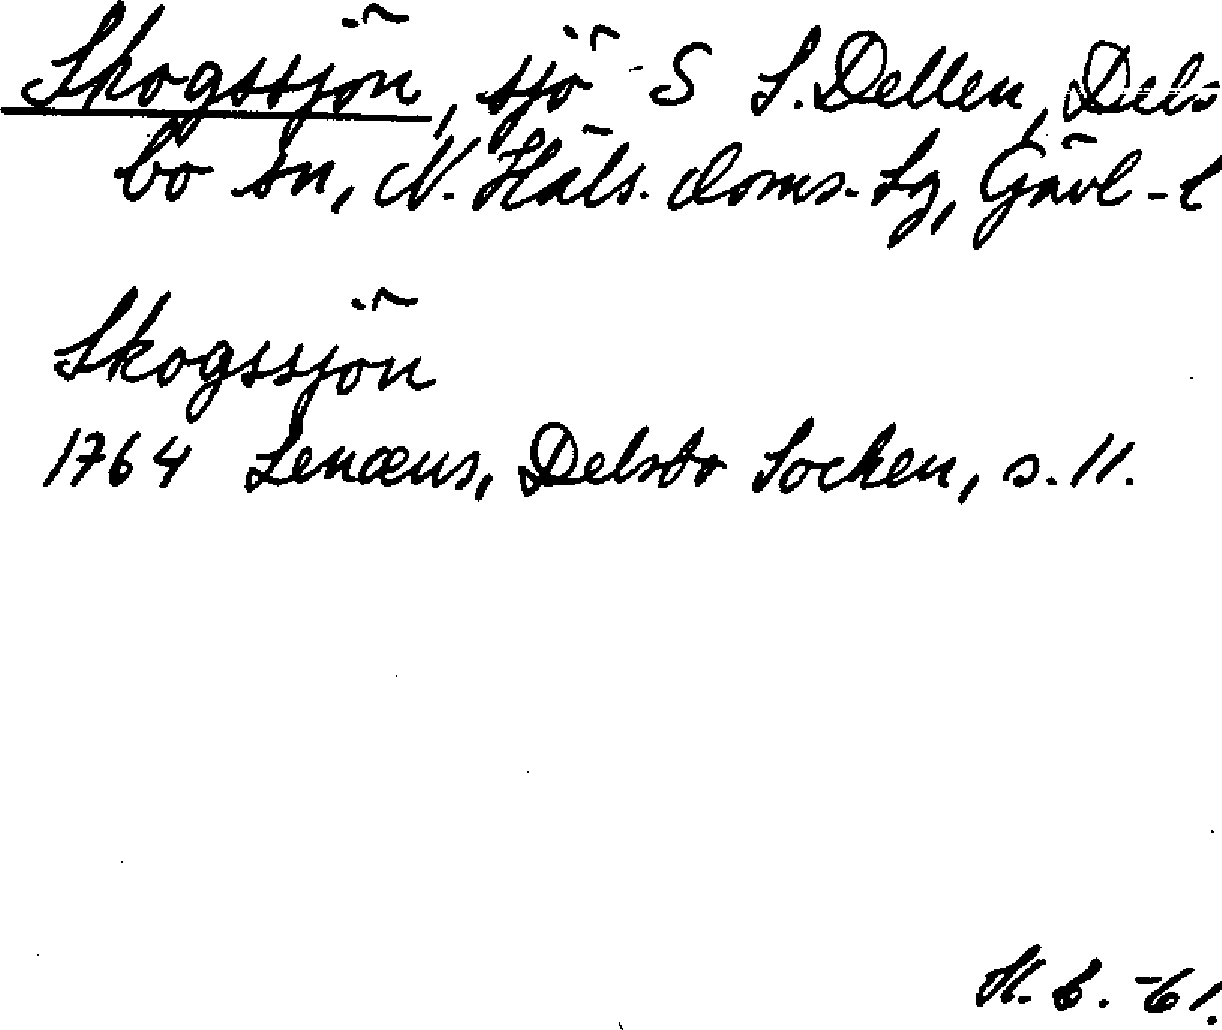 Skogssjön, sjö S S. Dellen, Dels
bo sn, N. Häls. doms.-tg, Gävl-l
Skogssjön
1764 Lenæus, Delsbo Socken, s. 11.
-61.